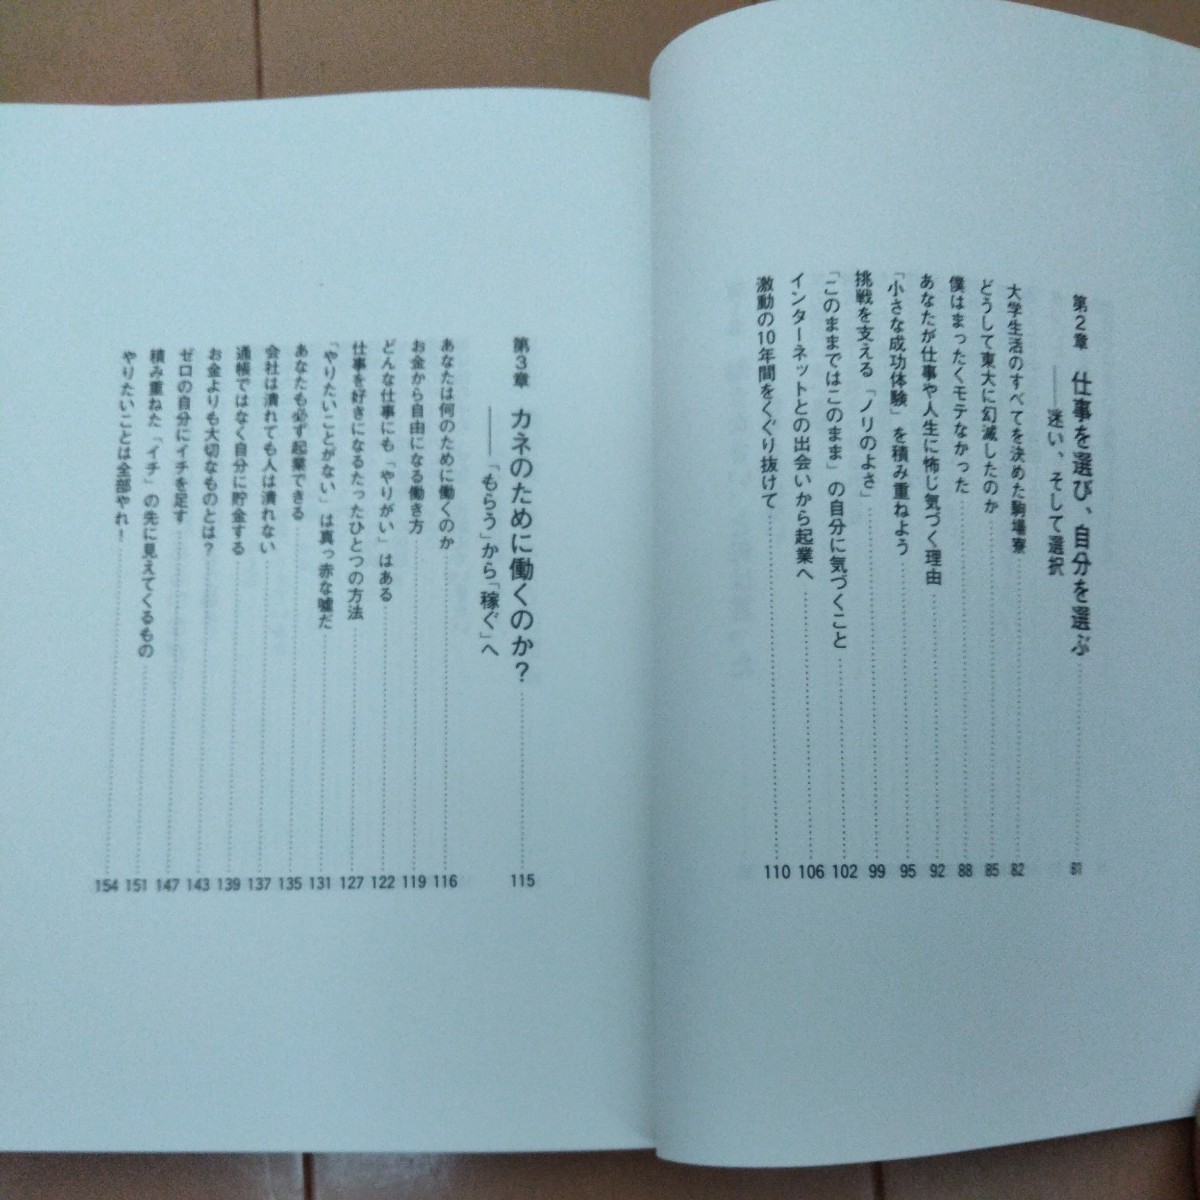 第2章 仕事を選び、自分を選ぶ 81
――迷い、そして選択
大学生活のすべてを決めた駒場寮 82
どうして東大に幻滅したのか 85
僕はまったくモテなかった 88
あなたが仕事や人生に怖じ気づく理由 92
「小さな成功体験」を積み重ねよう 95
挑戦を支える「ノリのよさ」 99
「このままではこのまま」の自分に気づくこと 102
インターネットとの出会いから起業へ 106
激動の10年間をくぐり抜けて 110
第3章 カネのために働くのか? 115
――「もらう」から「稼ぐ」へ
あなたは何のために働くのか 116
お金から自由になる働き方 119
どんな仕事にも「やりがい」はある 122
仕事を好きになるたったひとつの方法 127
「やりたいことがない」は真っ赤な嘘だ 131
あなたも必ず起業できる 135
会社は潰れても人は潰れない 137
通帳ではなく自分に貯金する 139
お金よりも大切なものとは? 143
ゼロの自分にイチを足す 147
積み重ねた「イチ」の先に見えてくるもの 151
やりたいことは全部やれ! 154